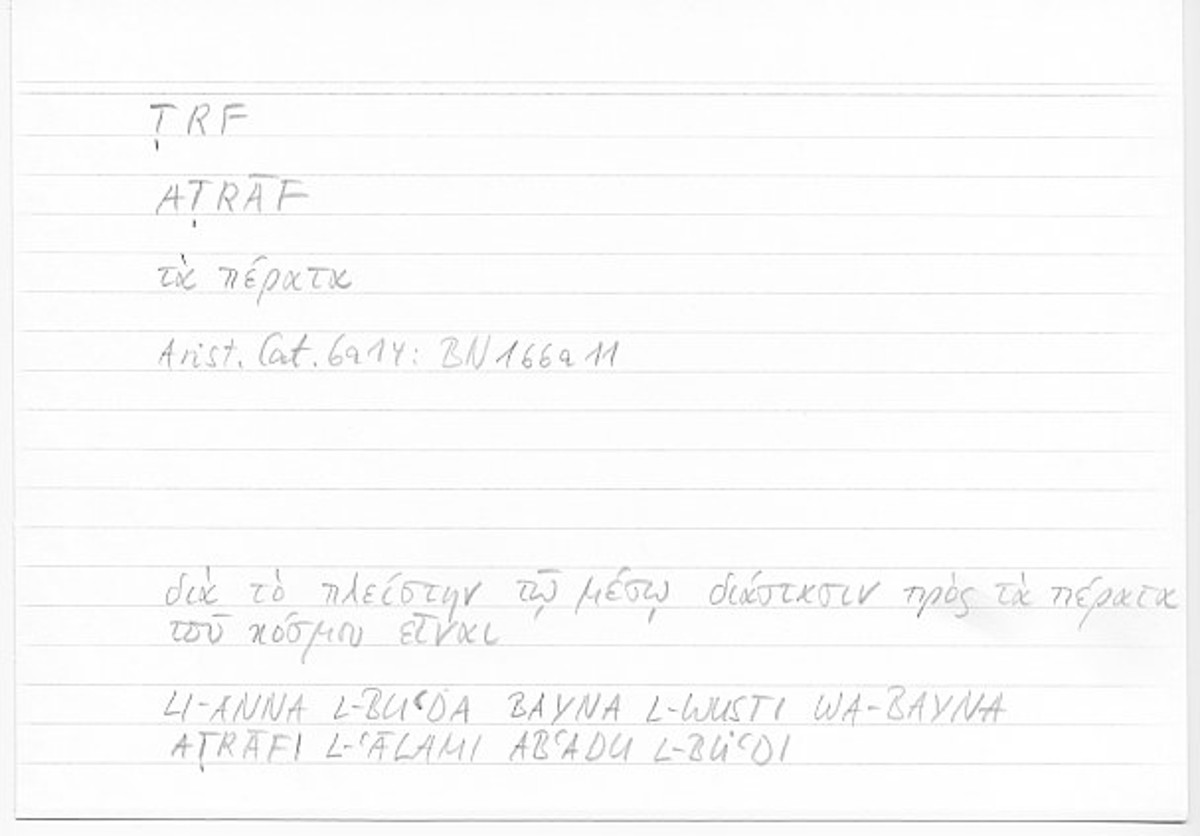 ṬRF
AṬRĀF
τὰ πέρατα
Arist. Cat. 6a14: BN166a11
διὰ τὸ πλείστην τῷ μέσῳ διάστασιν πρὸς τὰ πέρατα
τοῦ κόσμου εἶναι
LI-ANNA L-BUʿDA BAYNA L-WUSTI WA-BAYNA
AṬRĀFI L-ʿĀLAMI ABʿADU L-BUʿDI